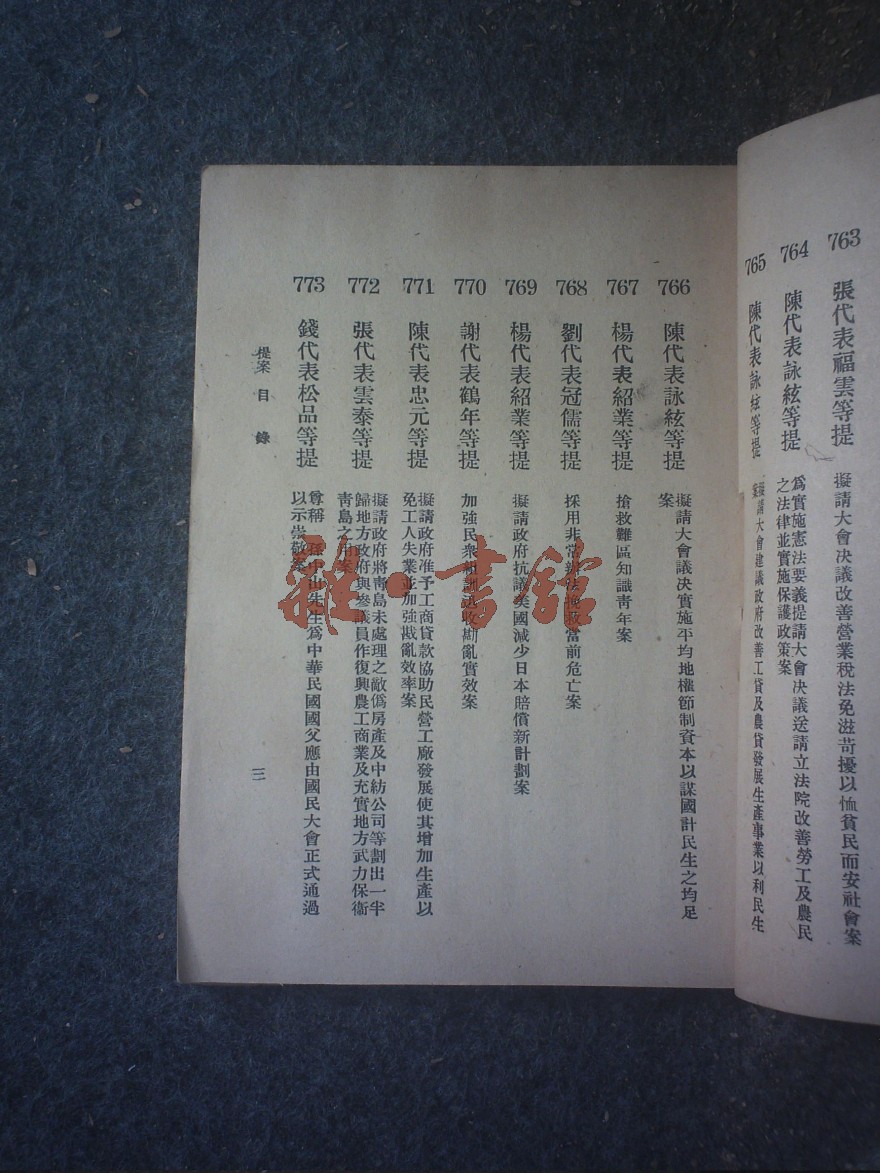 763 張代表福雲等提 擬請大會決議改善營業稅法免滋苛擾以恤貧民而安社會案
764 陳代表詠絃等提 爲實施憲法要義提請大會決議送請立法院改善勞工及農民
之法律並實施保護政策案
765 陳代表詠絃等提 擬請大會建議政府改善工貸及農貸發展生產事業以利民生
案
766 陳代表詠絃等提 擬請大會議決實施平均地權節制資本以謀國計民生之均足
案
767 楊代表紹業等提 搶救難區知識靑年案
768 劉代表冠儒等提 採用非常辦法挽救當前危亡案
769 楊代表紹業等提 擬請政府抗議美國減少日本賠償新計劃案
770 謝代表鶴年等提 加強民衆組訓迅收勘亂實效案
771 陳代表忠元等提 擬請政府准予工商貸款協助民營工廠發展使其增加生產以
免工人失業並加強戡亂效率案
772 張代表雲泰等提 擬請政府將靑島未處理之敵僞房產及中紡公司等劃出一半
歸地方政府與參議員作復興農工商業及充實地方武力保衞
靑島之用案
773 錢代表松品等提 尊稱 孫中山先生爲中華民國國父應由國民大會正式通過
以示崇敬案
提案目錄
三
雅·書館